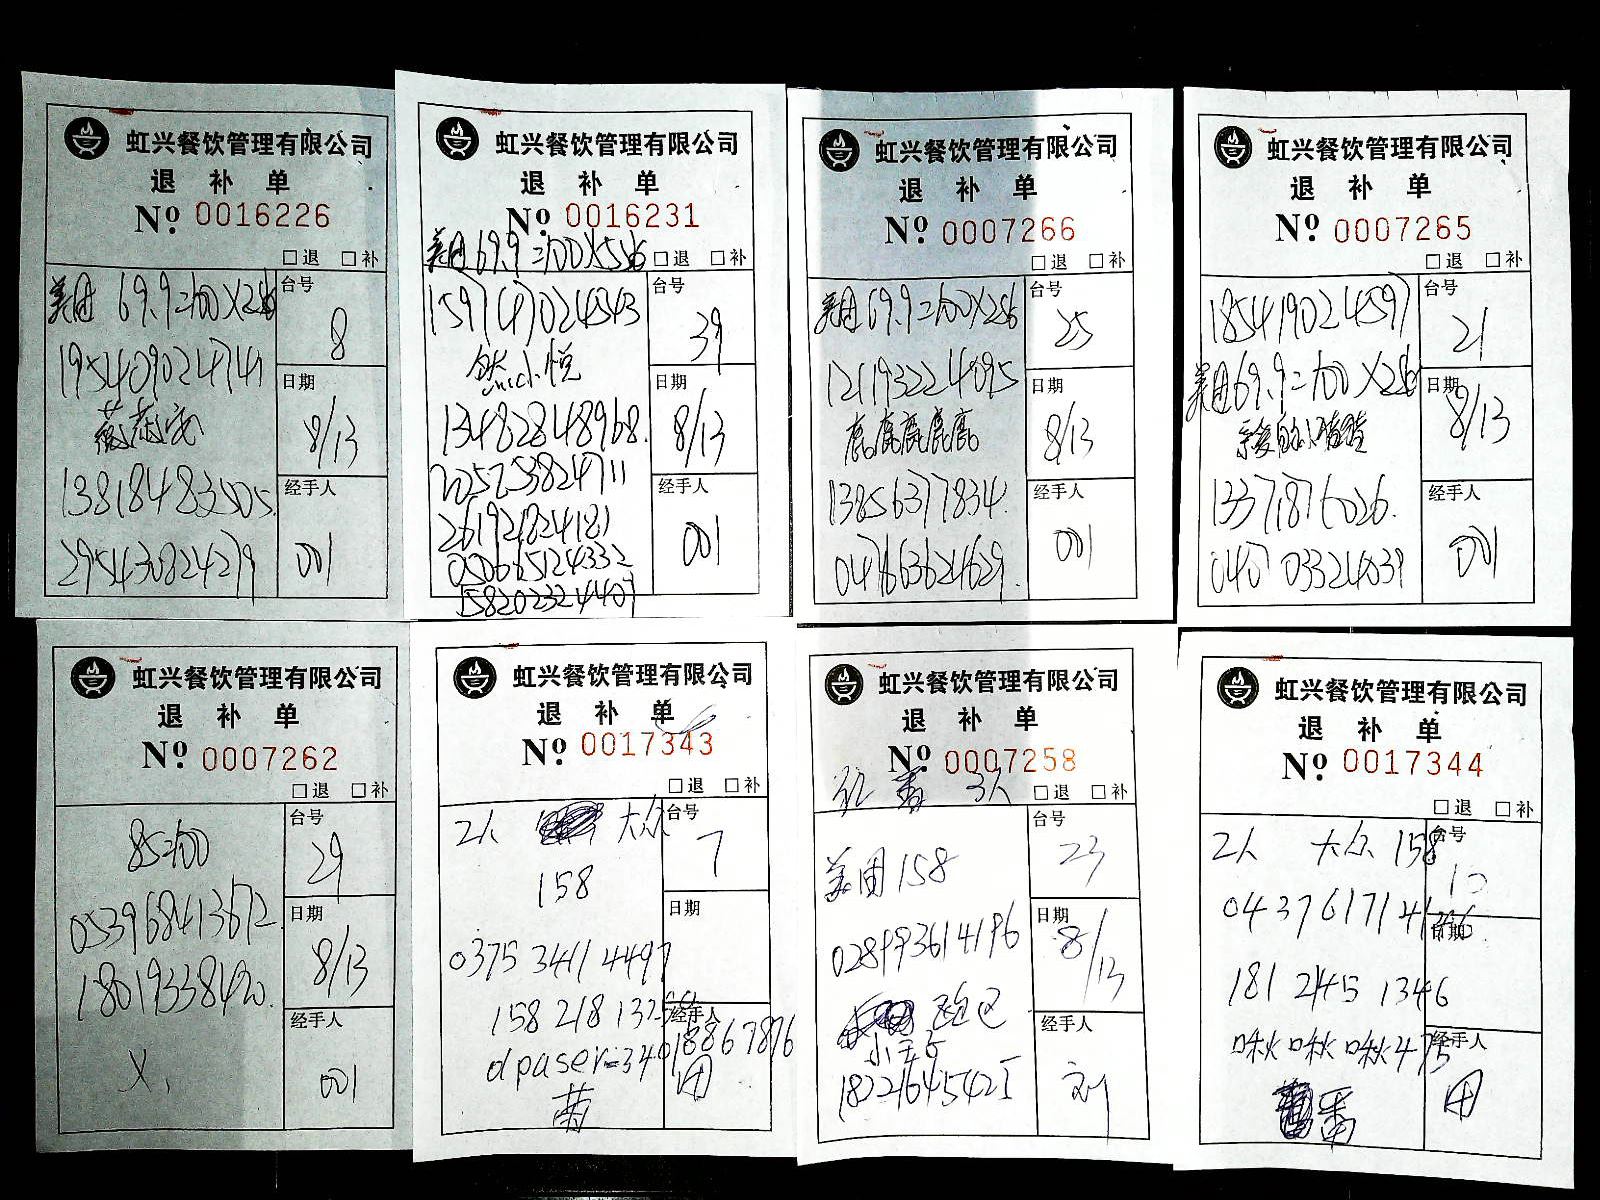 虹兴餐饮管理有限公司
退 补 单
Nº 0016226
□退 □补
美团 69.9=100X2张
台号
8
195409024741
日期
8/13
13818483505
经手人
295430824279
001
虹兴餐饮管理有限公司
退 补 单
Nº 0016231
美团69.9=100X5张
□退 □补
台号
39
159747024543
小悦
日期
8/13
13482848968
经手人
261921824181
001
050665124332
158202324407
虹兴餐饮管理有限公司
退 补 单
Nº 0007266
□退 □补
美团69.9=100X2张
台号
25
121193224095
日期
鹿鹿鹿鹿鹿
8/13
13856377834
经手人
047863624629
001
虹兴餐饮管理有限公司
退 补 单
Nº 0007265
□退 □补
185419024597
台号
21
美团69.9=100X2张
日期
8/13
13371876026
经手人
040703324039
001
虹兴餐饮管理有限公司
退 补 单
Nº 0007262
□退 □补
85=100
台号
29
053968413672
日期
18019338420
8/13
经手人
001
虹兴餐饮管理有限公司
退 补 单
Nº 0017343
□退 □补
2人 大众
台号
7
158
日期
0375 3411 4497
158 218 132
经手人
dpaser=34018867876
田
黄
虹兴餐饮管理有限公司
退 补 单
Nº 0007258
3人
□退 □补
台号
23
美团158
日期
028993614196
8/13
经手人
18221645421
刘
虹兴餐饮管理有限公司
退 补 单
Nº 0017344
□退 □补
2人 大众 158
台号
日期
181 2145 1346
啾啾啾475
经手人
田